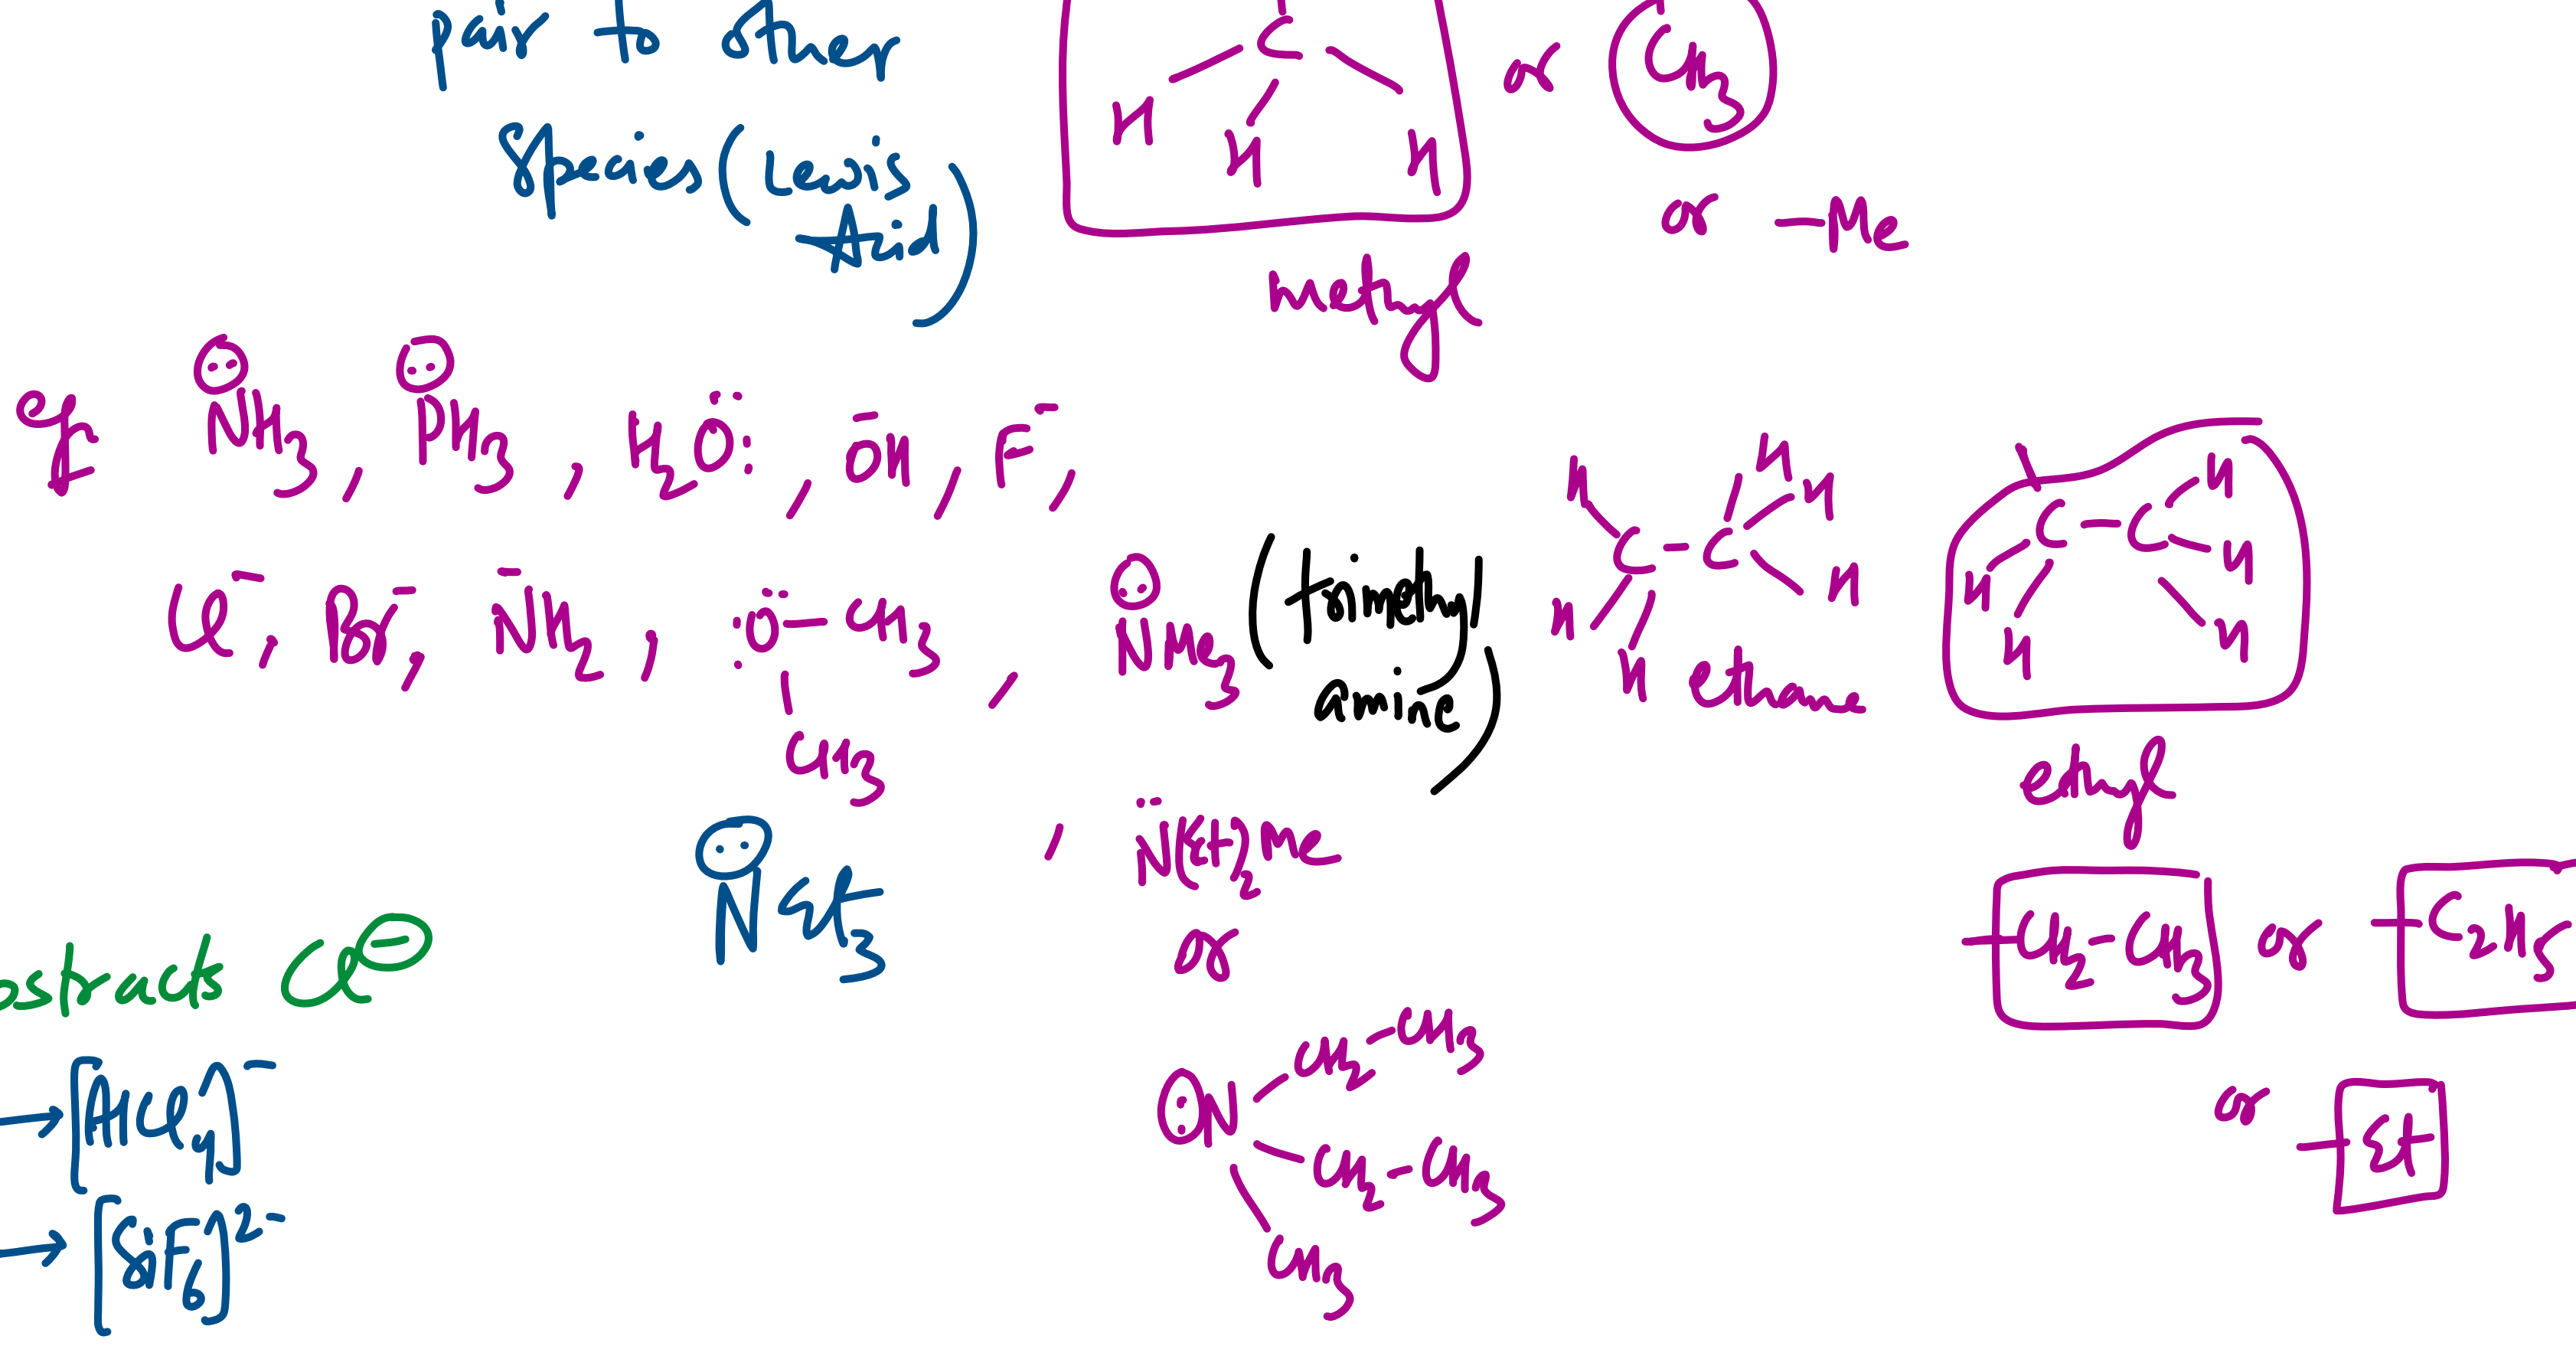 pair to other
species (Lewis
Acid)
C
H H H
or CH3
or -Me
methyl
eg N̈H3, P̈H3, H2Ö:, ŌH, F⁻,
Cl⁻, Br⁻, N̄H2, :Ö-CH3, N̈Me3 (trimethyl
amine)
CH3
H H H
C-C
H H H
ethane
C-C H
H H
H H
ethyl
N̈Et3
, N̈(Et)2Me
or
-CH2-CH3 or -C2H5
or -Et
:N CH2-CH3
CH2-CH3
CH3
bstracts Cl⊖
→[AlCl4]⁻
→[SiF6]2-